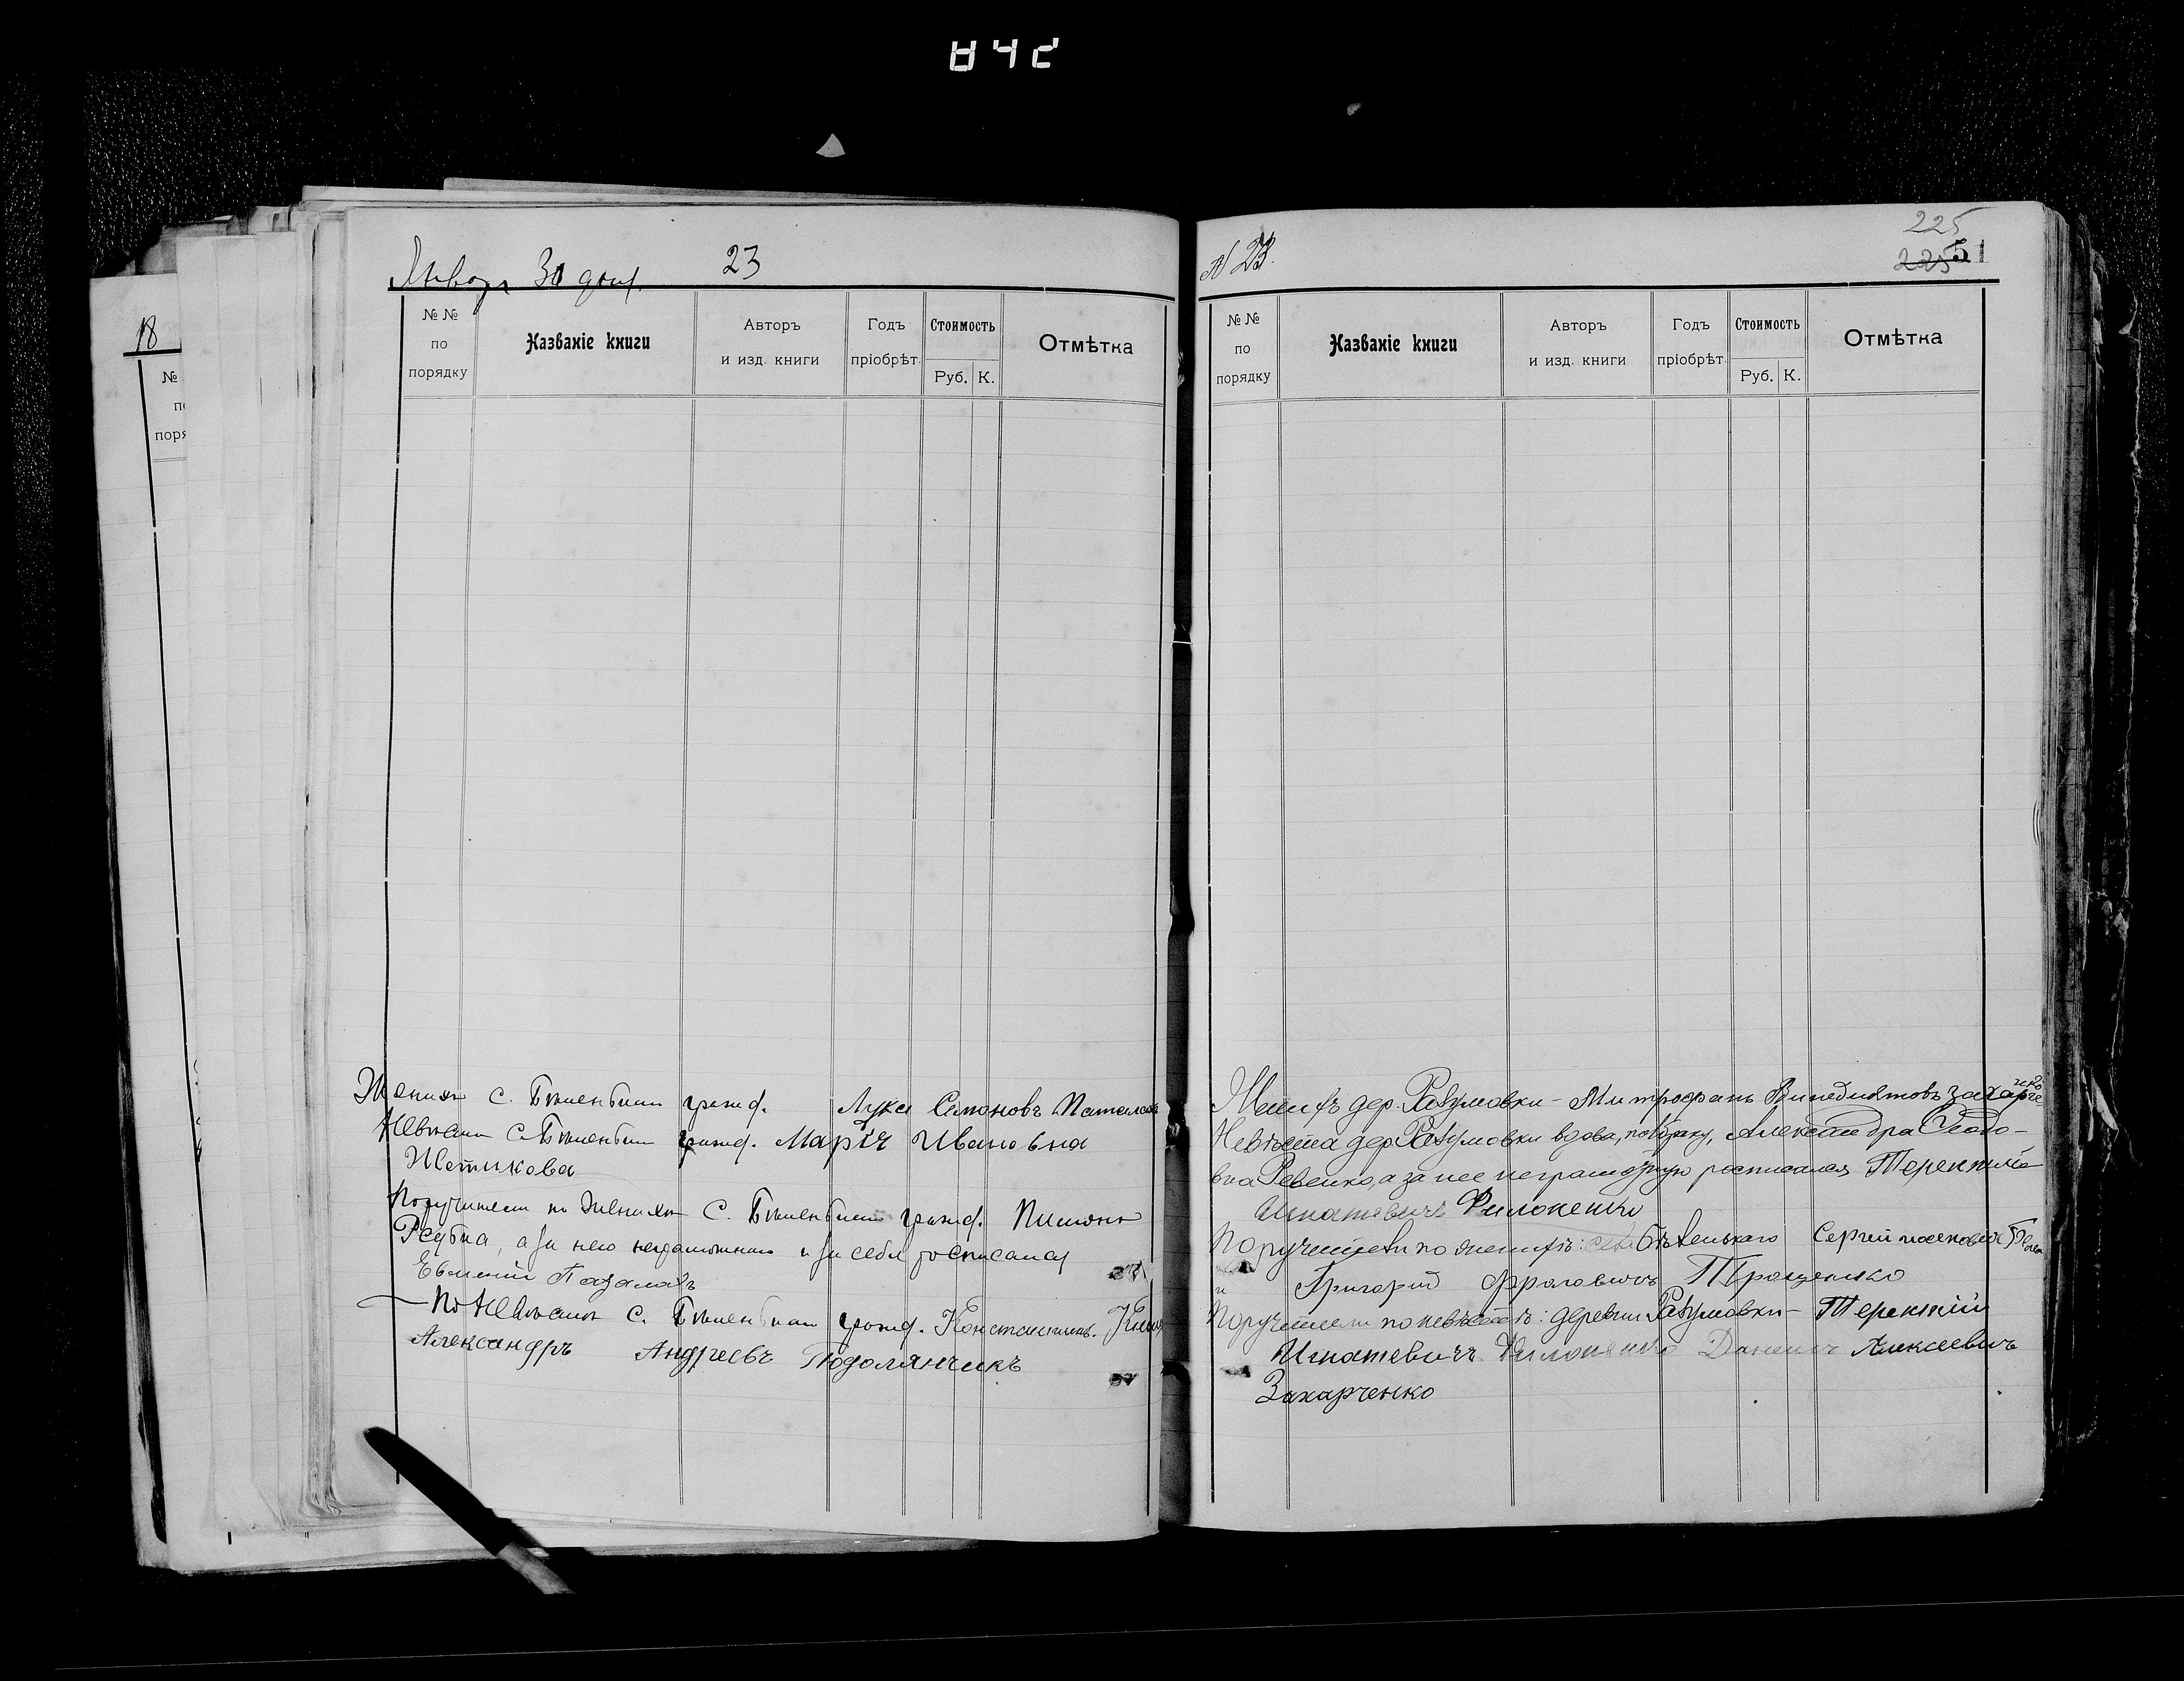 842
18
Января 30 дня. 23
№ № по порядку
Названіе книги
Авторъ и изд. книги
Годъ пріобрѣт.
Стоимость
Руб. К.
Отмѣтка
Женихъ с. гражд. Лука Семоновъ
Невѣста с. гражд. Марія Ивановна
Поручители по женихѣ с. гражд.
а за него неграмотнаго и за себя росписался
Евгеній
По невѣстѣ с. гражд. Константинъ
Александръ Андреевъ Подолянчикъ
N 23.
225
225 51
№ № по порядку
Названіе книги
Авторъ и изд. книги
Годъ пріобрѣт.
Стоимость
Руб. К.
Отмѣтка
Женихъ дер. Разумовки - Митрофанъ Винедиктовъ Захарченко
Невѣста дер. Разумовки вдова, по браку, Александра Ѳедо-
вна Ревенко, а за нее неграмотную росписался Терентій
Игнатевичъ Филоненко
Поручители по женихѣ: села Бѣленькаго Сергѣй
и Григорій Фроловичъ Трощенко
Поручители по невѣстѣ: деревни Разумовки - Терентій
Игнатевичъ Филоненко Данеилъ Алексеевичъ
Захарченко